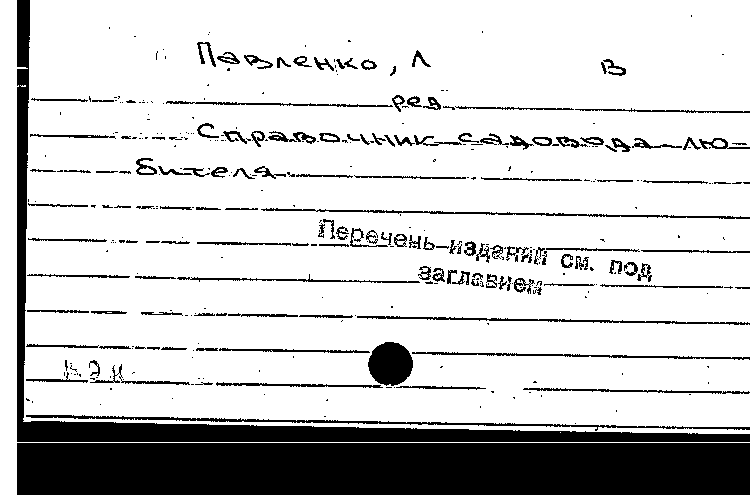 Павленко, Л В
ред
Справочник садовода-лю-
бителя
Перечень изданий см. под
заглавием